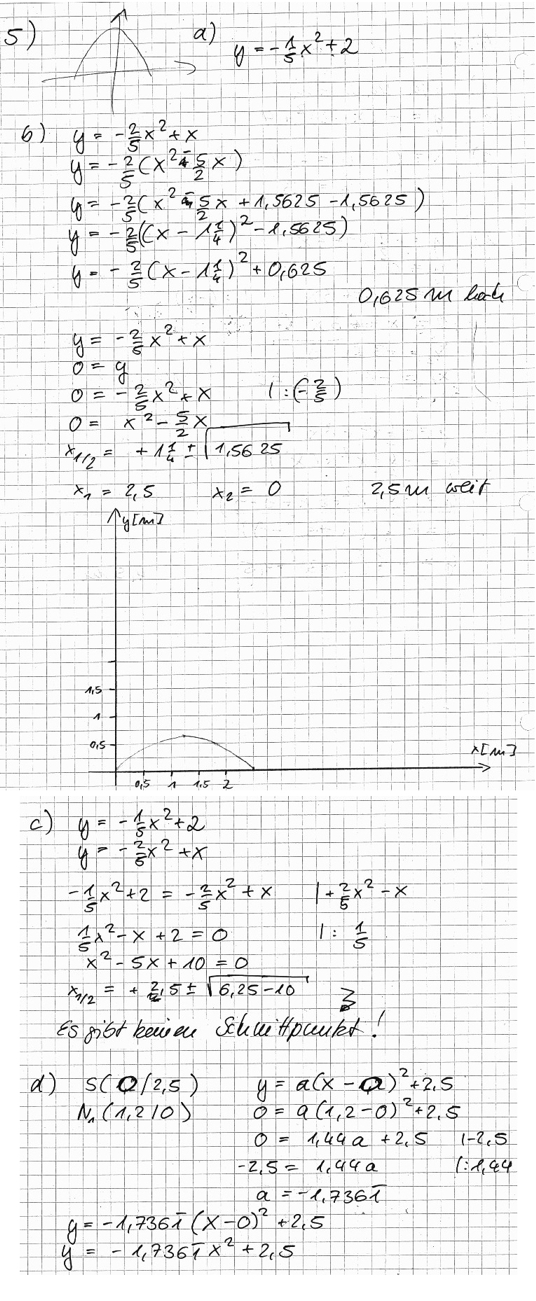 5) a) y = -1/5 x² + 2
b) y = -2/5 x² + x
y = -2/5 (x² - 5/2 x)
y = -2/5 (x² - 5/2 x + 1,5625 - 1,5625)
y = -2/5 ((x - 1 1/4)² - 1,5625)
y = -2/5 (x - 1 1/4)² + 0,625
0,625 m hoch
y = -2/5 x² + x
0 = y
0 = -2/5 x² + x | : (-2/5)
0 = x² - 5/2 x
x1/2 = + 1 1/4 ± √1,5625
x₁ = 2,5 x₂ = 0 2,5 m weit
y [m]
1,5
1
0,5
x [m]
0,5 1 1,5 2
c) y = -1/5 x² + 2
y = -2/5 x² + x
-1/5 x² + 2 = -2/5 x² + x | + 2/5 x² - x
1/5 x² - x + 2 = 0 | : 1/5
x² - 5x + 10 = 0
x1/2 = + 2,5 ± √6,25 - 10
Es gibt keinen Schnittpunkt!
d) S(0/2,5) y = a(x - 0)² + 2,5
N₁(1,2/0) 0 = a(1,2 - 0)² + 2,5
0 = 1,44a + 2,5 | -2,5
-2,5 = 1,44a | : 1,44
a = -1,7361̅
y = -1,7361̅ (x - 0)² + 2,5
y = -1,7361̅ x² + 2,5